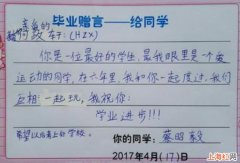 毕业赠言——给同学
亲爱的
政轩:(HZX)
你是一位最好的学生,在我眼里是一个爱
运动的同学,在六年里,我和你一起度过,我们
互相一起玩,我祝你:
学业进步!!!
希望以后考上好学校。
你的同学:蔡明
2017年4月(17)日
上海红网